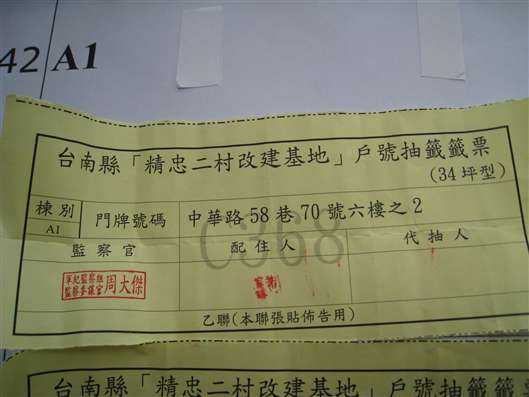 42 A1
台南縣「精忠二村改建基地」戶號抽籤籤票
(34坪型)
棟別 門牌號碼 中華路58巷70號六樓之2
A1
監察官 配住人 代抽人
C368
軍紀監察組
監察參謀官 周大傑
乙聯(本聯張貼佈告用)
台南縣「精忠二村改建基地」戶號抽籤籤票